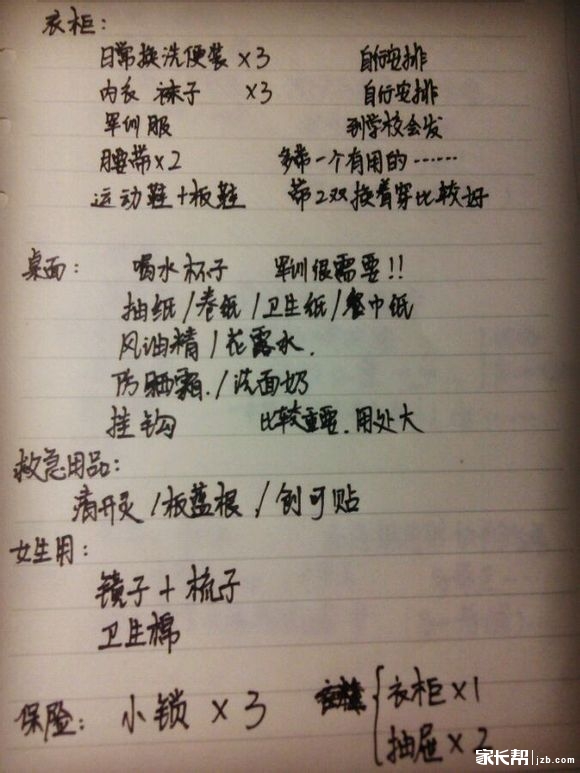 衣柜：
日常换洗便装 ×3 自行安排
内衣 袜子 ×3 自行安排
军训服 到学校会发
腰带×2 多带一个有用的……
运动鞋+板鞋 带2双换着穿比较好
桌面： 喝水杯子 军训很需要!!
抽纸/卷纸/卫生纸/餐巾纸
风油精/花露水.
防晒霜./洗面奶
挂钩 比较重要.用处大
救急用品：
清开灵/板蓝根/创可贴
女生用：
镜子+梳子
卫生棉
保险：小锁 ×3 衣柜×1
抽屉×2
家长帮 jzb.com